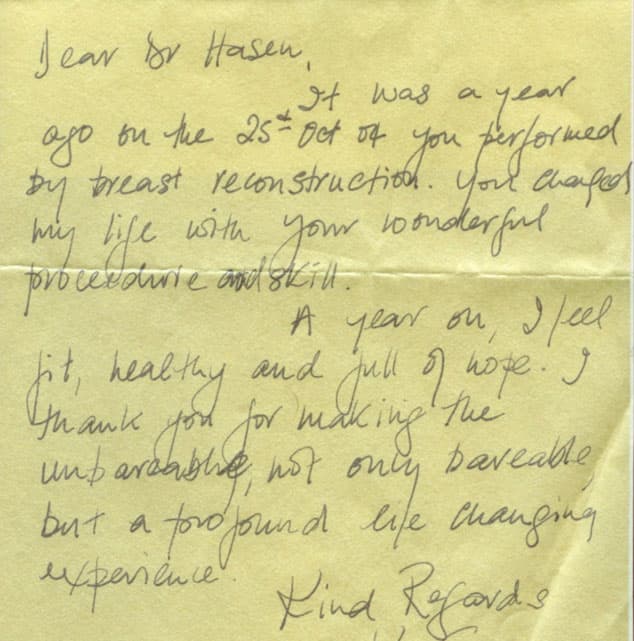 Dear Dr Hasen,
It was a year
ago on the 25th Oct 04 you performed
by breast reconstruction. You changed
my life with your wonderful
proceedure and skill.
A year on, I feel
fit, healthy and full of hope. I
thank you for making the
unbareable, not only bareable
but a profound life changing
experience.
Kind Regards